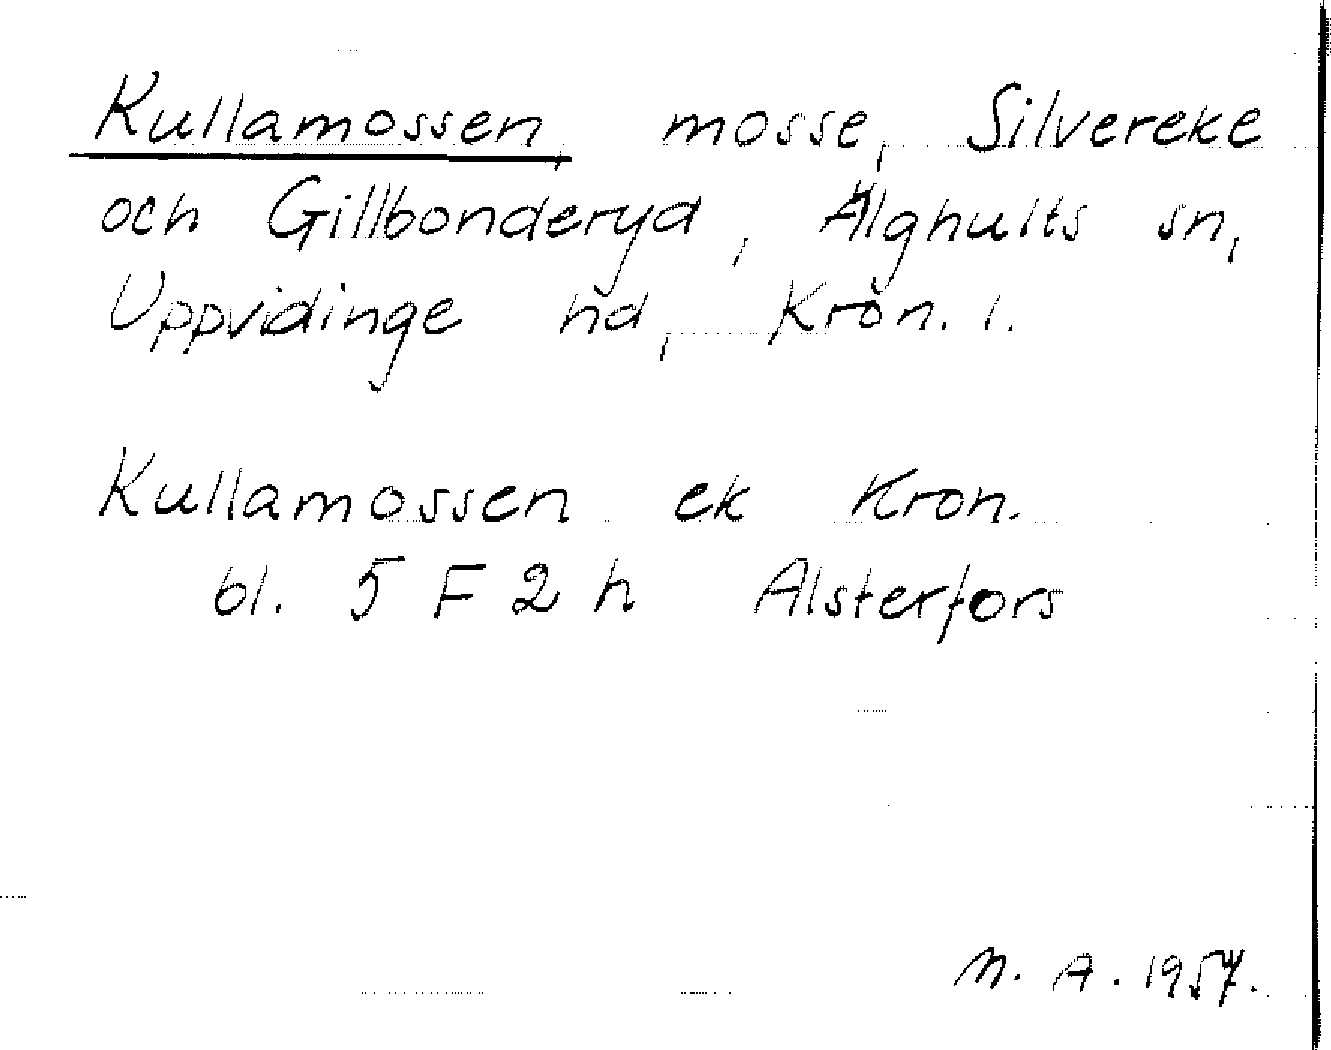 Kullamossen, mosse, Silvereke
och Gillbonderyd, Älghults sn,
Uppvidinge hd, Kron. l.
Kullamossen ek Kron.
bl. 5 F 2 h Alsterfors
N. A. 1957.